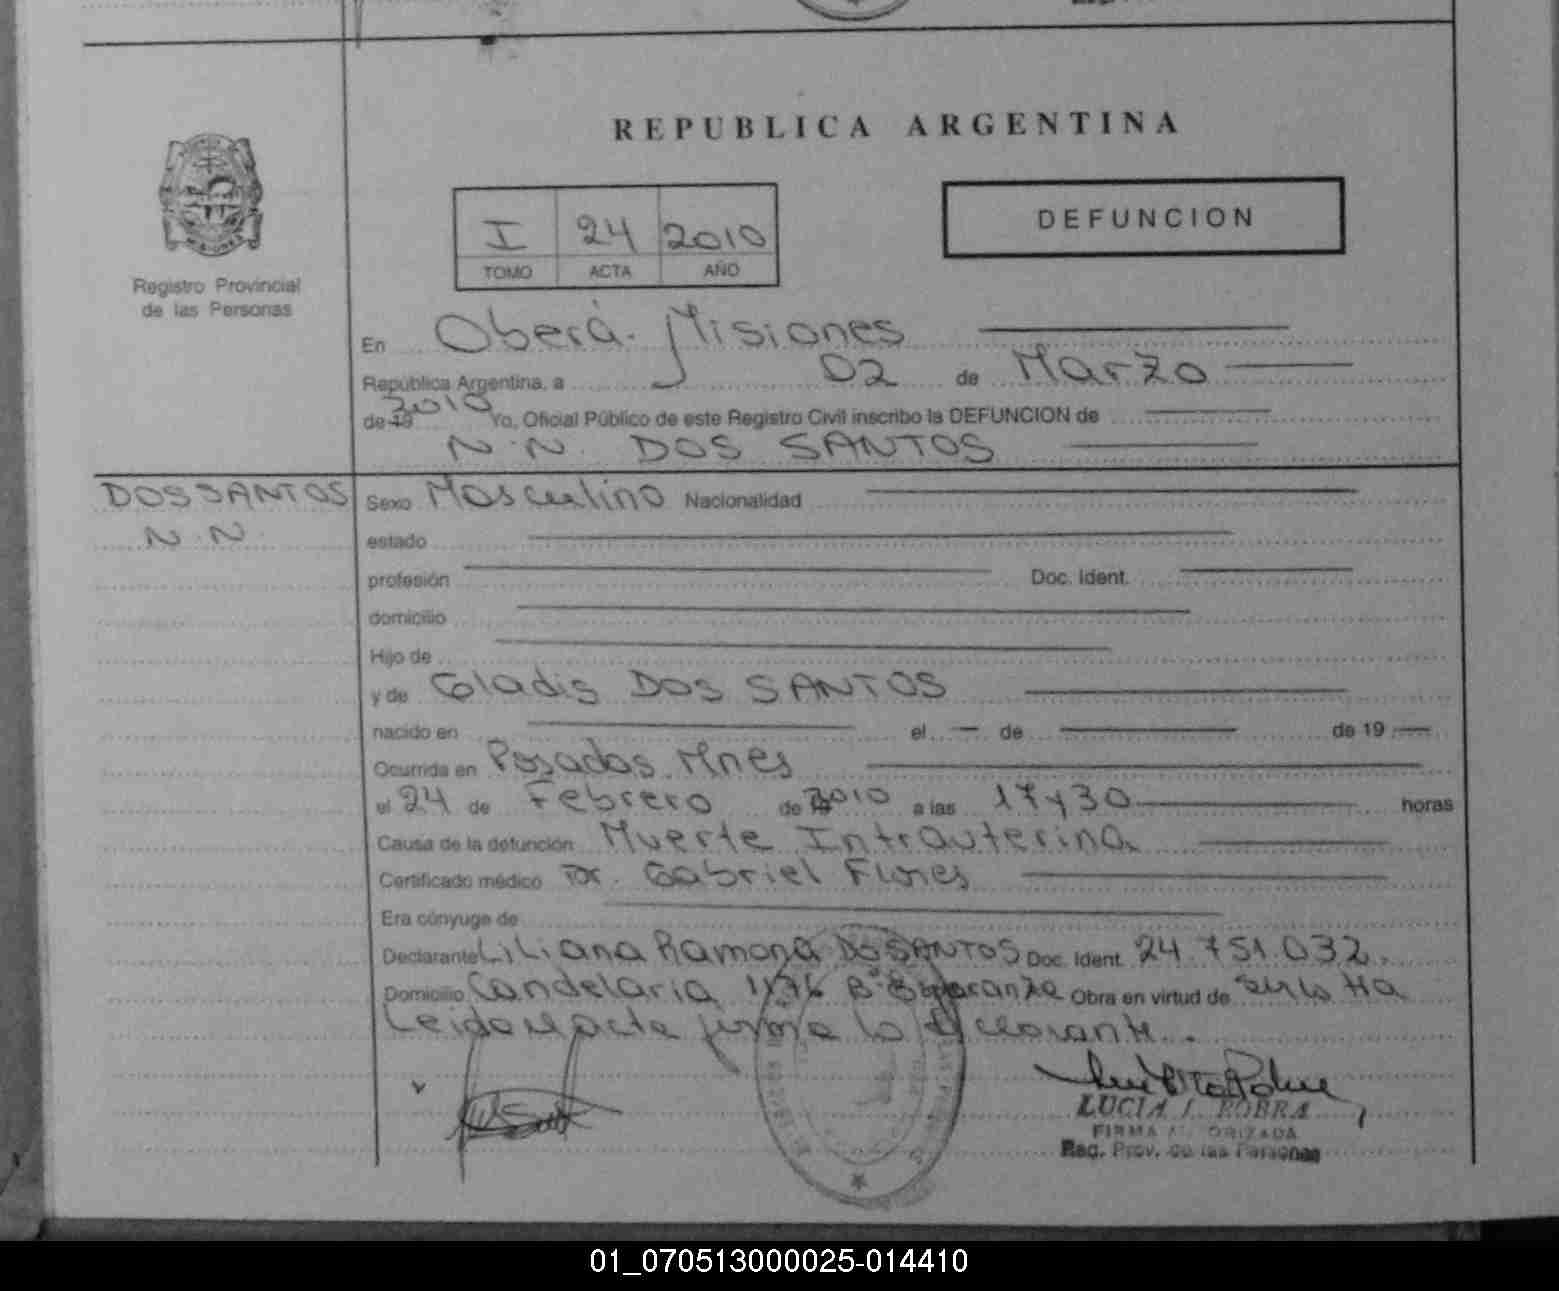 REPUBLICA ARGENTINA
I 24 2010
TOMO ACTA AÑO
DEFUNCION
Registro Provincial
de las Personas
En Oberá. Misiones
República Argentina, a 02 de Marzo
de 19 2010 Yo, Oficial Público de este Registro Civil inscribo la DEFUNCION de
N.N. DOS SANTOS
DOS SANTOS
N.N.
Sexo Masculino Nacionalidad
estado
profesión Doc. Ident.
domicilio
Hijo de
y de Gladis DOS SANTOS
nacido en el — de de 19
Ocurrida en Posadas Mnes
el 24 de Febrero de 2010 a las 17 y 30 horas
Causa de la defunción Muerte Intrauterina
Certificado médico Dr. Gabriel Flores
Era cónyuge de
Declarante Liliana Ramona DOS SANTOS Doc. Ident. 24.751.032.
Domicilio Candelaria 1176 Bº Esperanza Obra en virtud de
Leida el acta firma la declarante.
LUCIA I. ROBRA
FIRMA AUTORIZADA
Reg. Prov. de las Personas
01_070513000025-014410